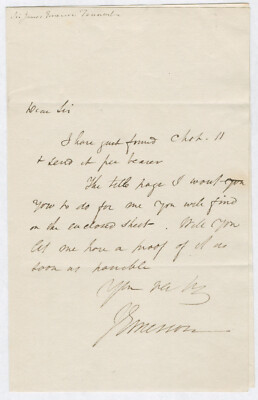 Sir James Emerson Tennent
Dear Sir
I have just found Chap. 11
& send it per bearer
The title page I want you
you to do for me you will find
on the enclosed sheet. Will you
let me have a proof of it as
soon as possible
Your
J Emerson